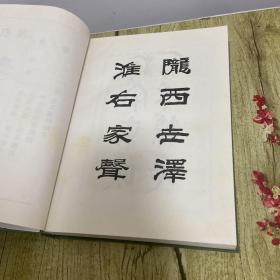 隴西世澤
淮右家聲